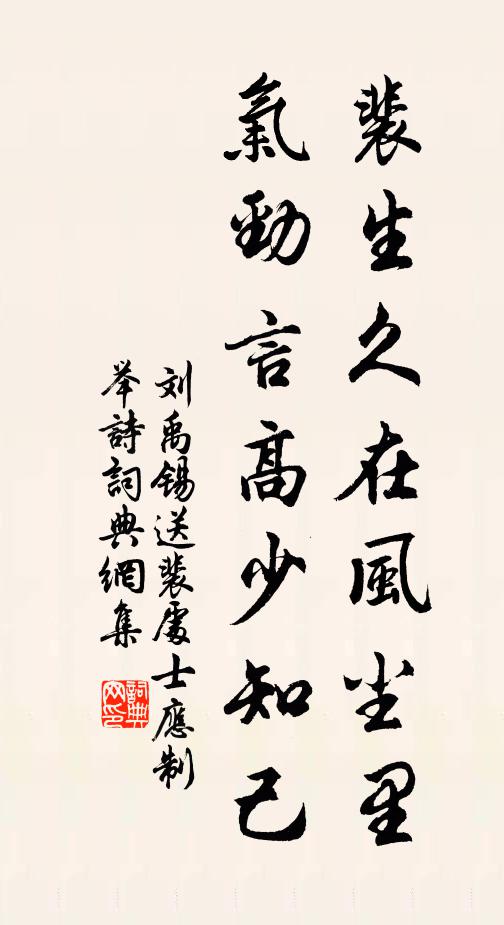 裴生久在風尘里
氣勁言高少知己
刘禹锡送裴處士應制
举詩詞典網集
詞典
网印